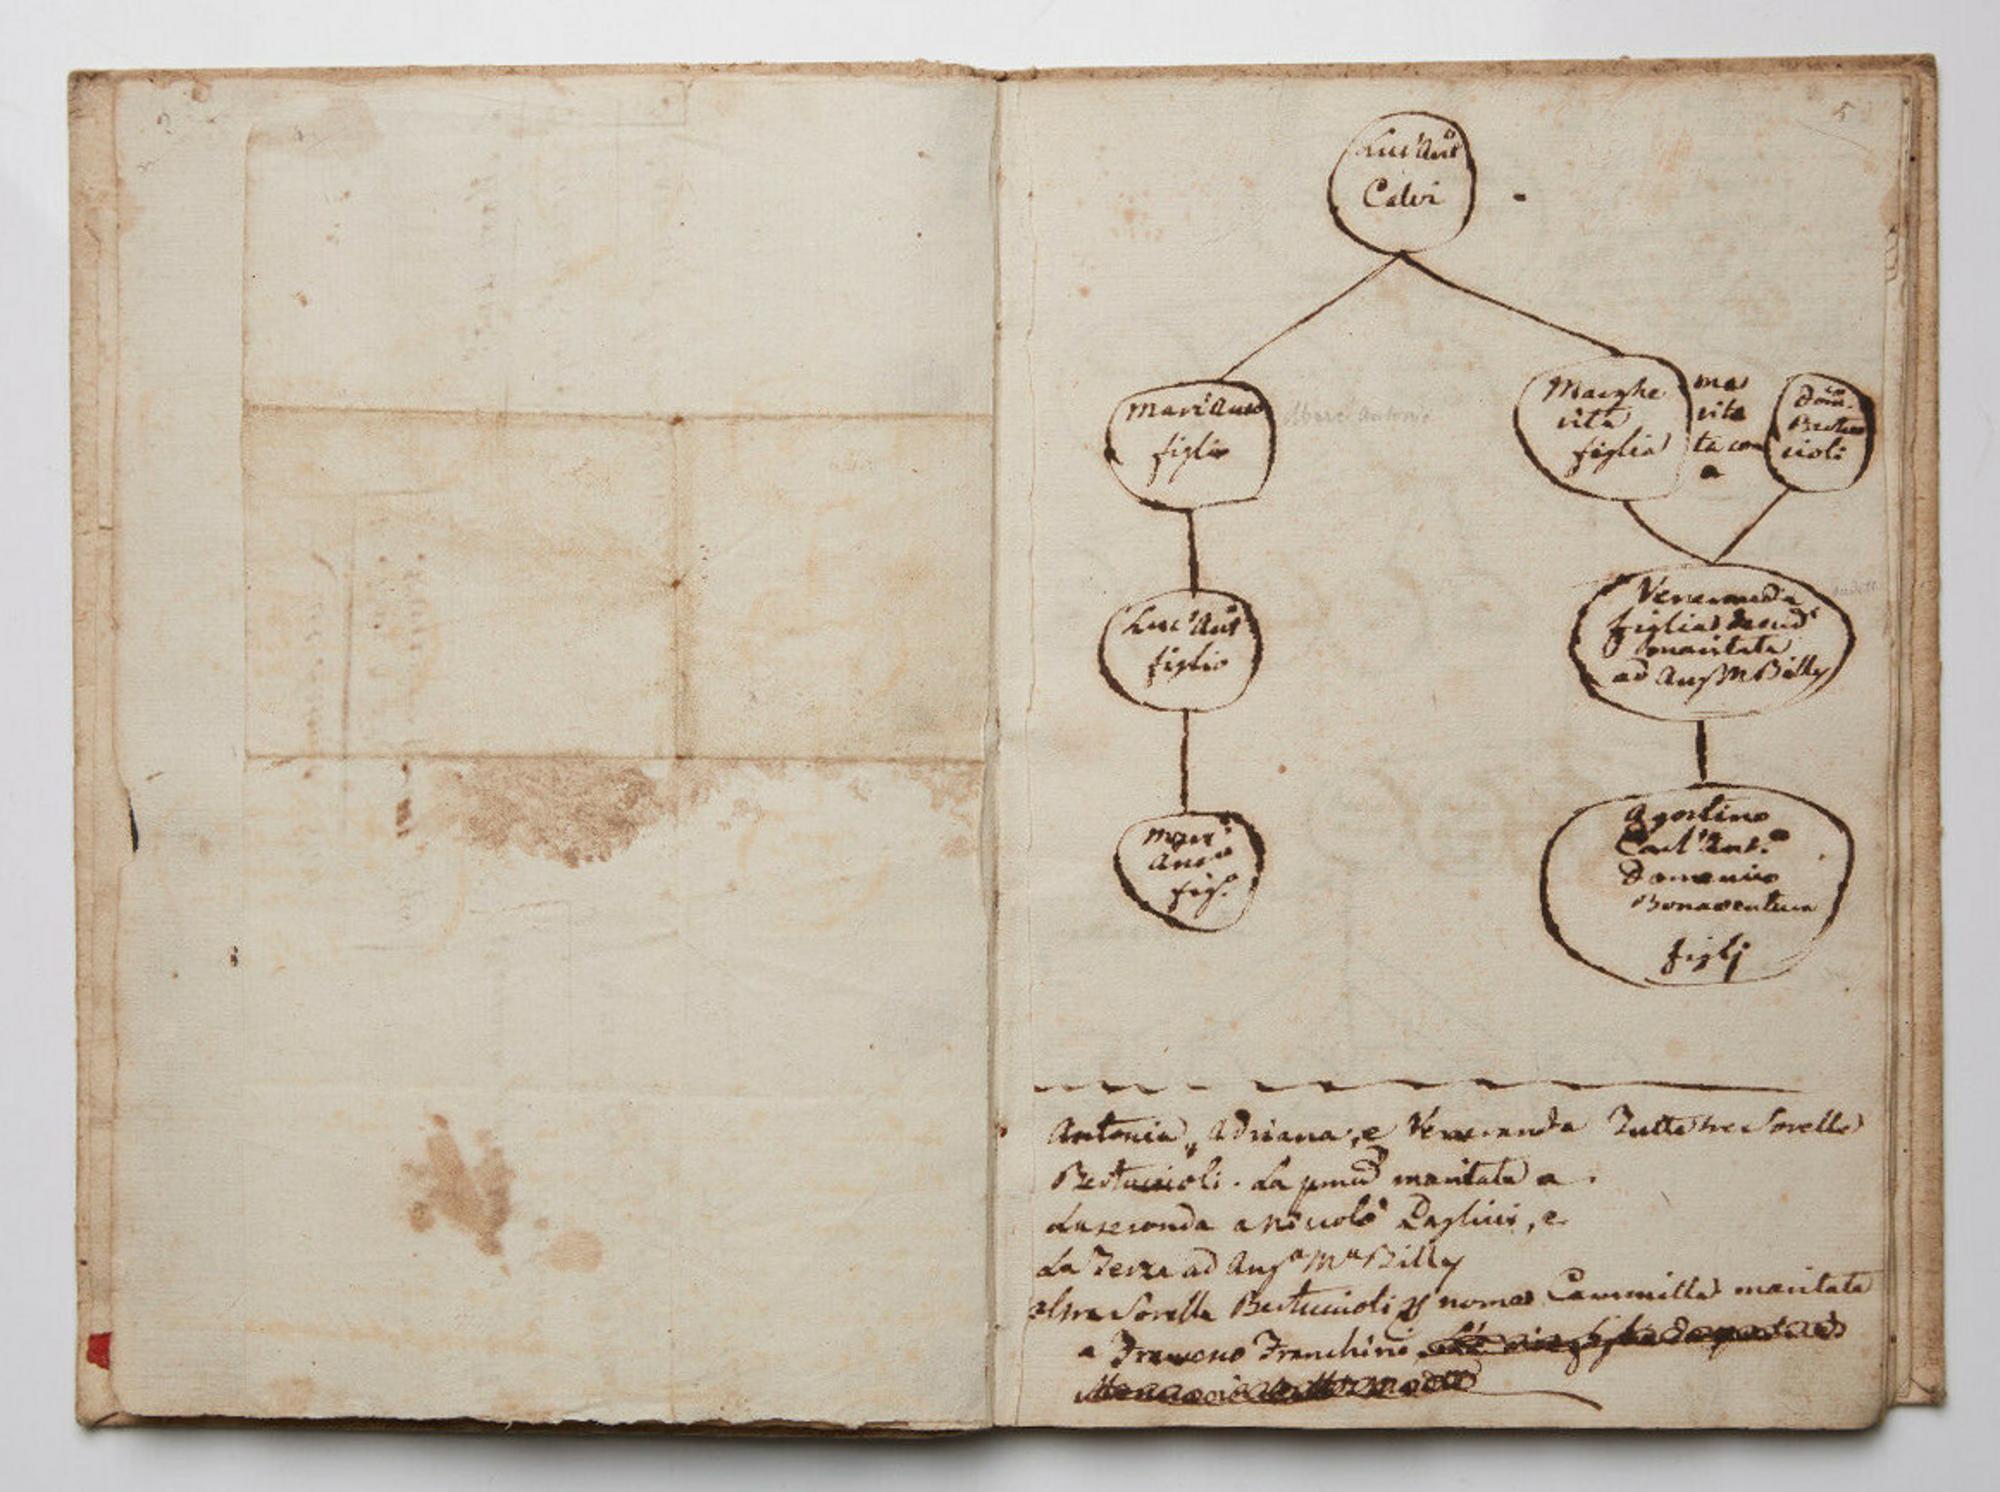 5
Luc'Antº
Calvi
Marc'Antº
figlio
Marc'Antonio
Marghe
rita
figlia
ma
rita
ta con
a
Domco
Bertuc
cioli
Luc'Antº
figlio
Veneranda
figlia
maritata
ad Angº Mª Billy
Marc'
Antº
figº
Agostino
Carl'Antº
Domenico
Bonaventura
figlj
Antonia, Adriana, e Veneranda Tutte tre Sorelle
Bertuccioli. La pma maritata a .
La seconda a Niccolò, e
La Terza ad Angº Mª Billy
altra Sorella Bertuccioli nome Cammilla maritata
a Francesco Franchini